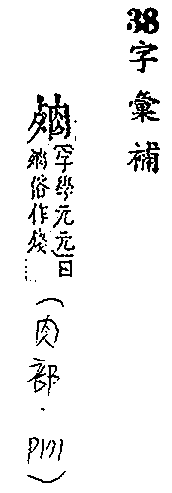 38字彙補
字學元元曰
俗作
(肉部·P171)